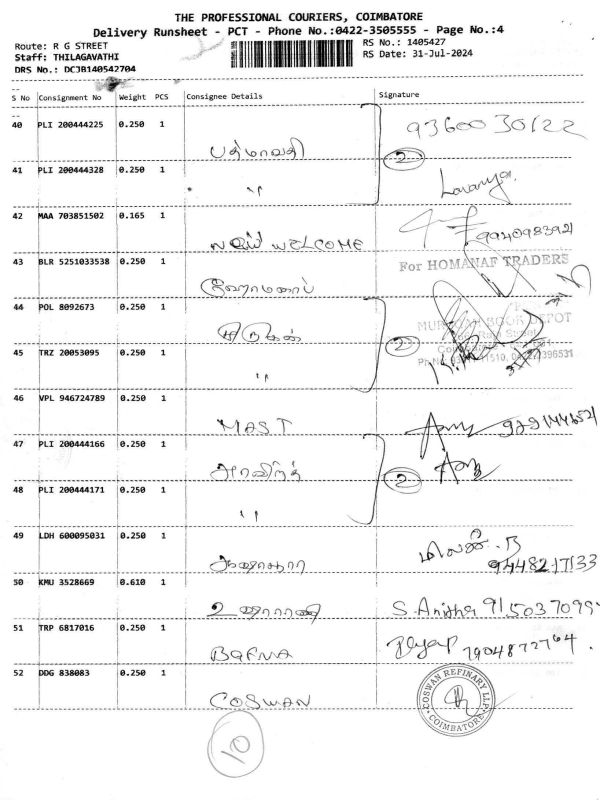 THE PROFESSIONAL COURIERS, COIMBATORE
Delivery Runsheet - PCT - Phone No.:0422-3505555 - Page No.:4
Route: R G STREET
RS No.: 1405427
Staff: THILAGAVATHI
RS Date: 31-Jul-2024
DRS No.: DCJB140542704
S No Consignment No Weight PCS Consignee Details Signature
40 PLI 200444225 0.250 1
பத்மாவதி 2 9360030122
41 PLI 200444328 0.250 1
" Lavanya
42 MAA 703851502 0.165 1
WELCOME 9940983921
43 BLR 5251033538 0.250 1
For HOMANAF TRADERS
44 POL 8092673 0.250 1
முருகன் 2 BOOK DEPOT
45 TRZ 20053095 0.250 1
"
46 VPL 946724789 0.250 1
MAST
47 PLI 200444166 0.250 1
அரவிந்த் 2
48 PLI 200444171 0.250 1
"
49 LDH 600095031 0.250 1
9448217133
50 KMU 3528669 0.610 1
S. Anitha
51 TRP 6817016 0.250 1
BAFNA 7904872764
52 DDG 838083 0.250 1
COSWAN COSWAN REFINARY LLP COIMBATORE
10